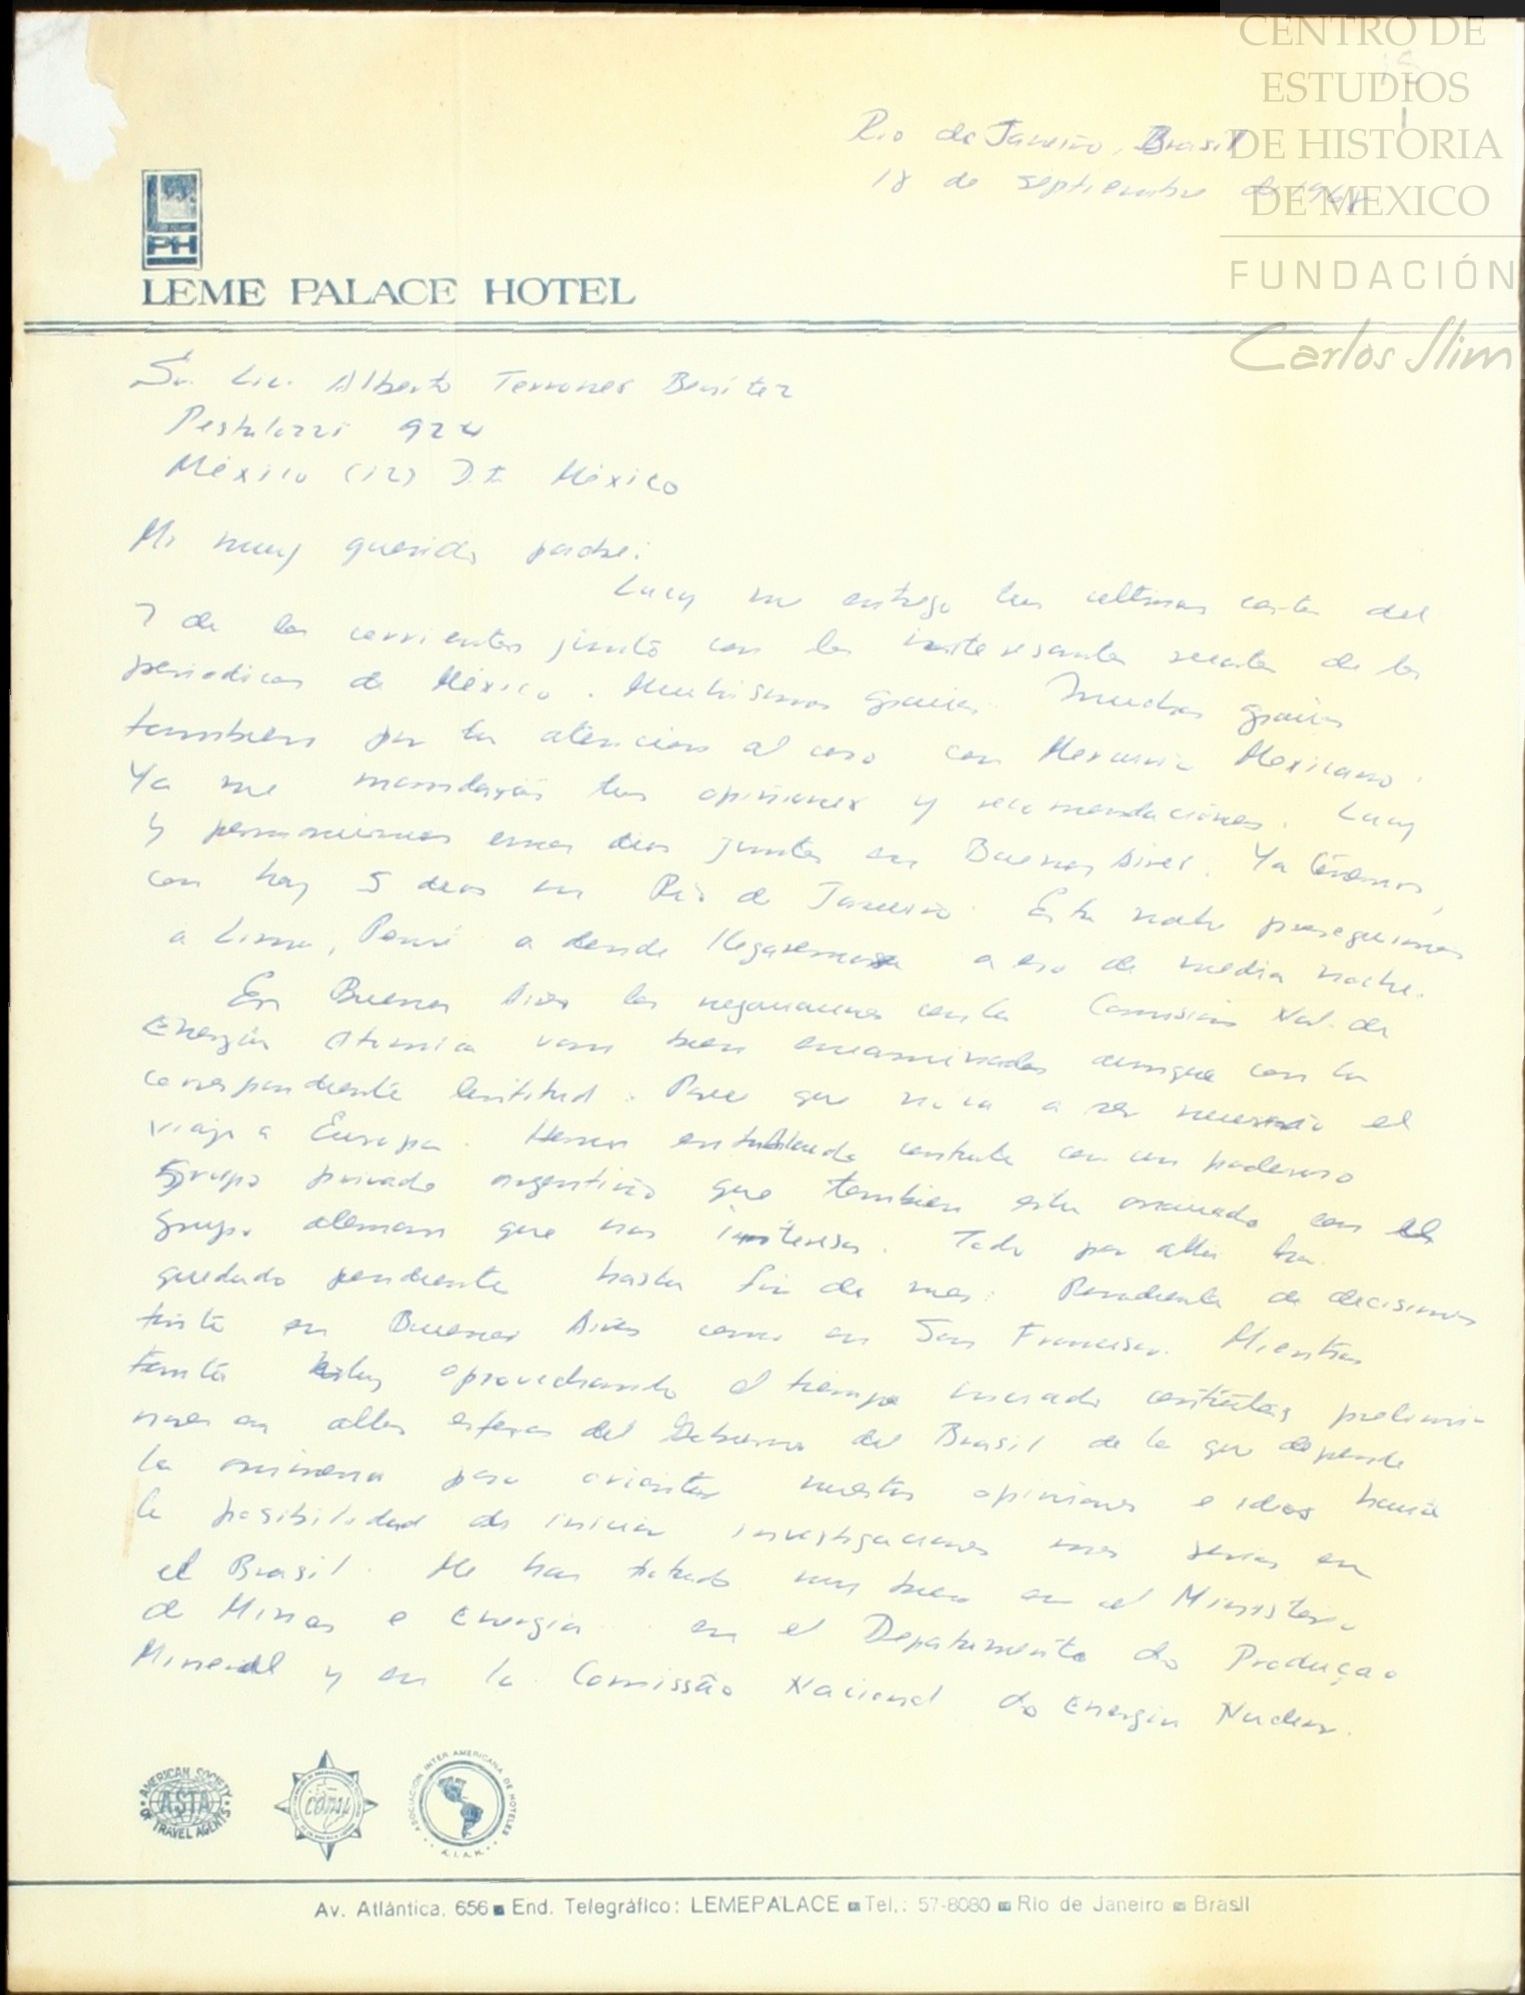 CENTRO DE
ESTUDIOS
DE HISTORIA
DE MEXICO
FUNDACIÓN
Carlos Slim
Rio de Janeiro, Brasil
18 de septiembre de 1968
PH
LEME PALACE HOTEL
Sr. Lic. Alberto Terrones Benítez
Pestalozzi 924
México (12) D.F. México
Mi muy querido padre:
Lucy me entrego tu ultima carta del
7 de los corrientes junto con la interesante de los
periodicos de México. Muchisimas gracias. Muchas gracias
tambien por tu atencion al caso con Mercurio Mexicano.
Ya me mandarás tus opiniones y recomendaciones. Lucy
y permanecimos unos dias juntos en Buenos Aires. Ya tenemos,
con hoy 5 dias en Rio de Janeiro. Esta noche proseguimos
a Lima, Perú a donde llegaremos a eso de media noche.
En Buenos Aires las negociaciones con la Comision Nal. de
Energia Atomica van bien encaminadas aunque con la
correspondiente lentitud. Parece que no va a ser necesario el
viaje a Europa. Hemos entablado contacto con un poderoso
grupo privado argentino que tambien esta asociado con el
grupo aleman que nos interesa. Todo por alla ha
quedado pendiente hasta fin de mes. Pendiente de decisiones
tanto en Buenos Aires como en San Francisco. Mientras
tanto estoy aprovechando el tiempo iniciado contactos prelimi-
nares en altas esferas del Gobierno del Brasil de la que depende
la mineria para orientar nuestras opiniones e ideas hacia
la posibilidad de iniciar investigaciones mas serias en
el Brasil. Me han tratado muy bien en el Ministerio
de Minas e Energia en el Departamento do Produçao
Mineral y en la Comissão Nacional do Energia Nuclear.
AMERICAN SOCIETY
ASTA
OF TRAVEL AGENTS
COTAL
ASOCIACION INTER AMERICANA DE HOTELES
A.I.A.H.
Av. Atlântica, 656 ■ End. Telegráfico: LEMEPALACE ■ Tel.: 57-8080 ■ Rio de Janeiro ■ Brasil